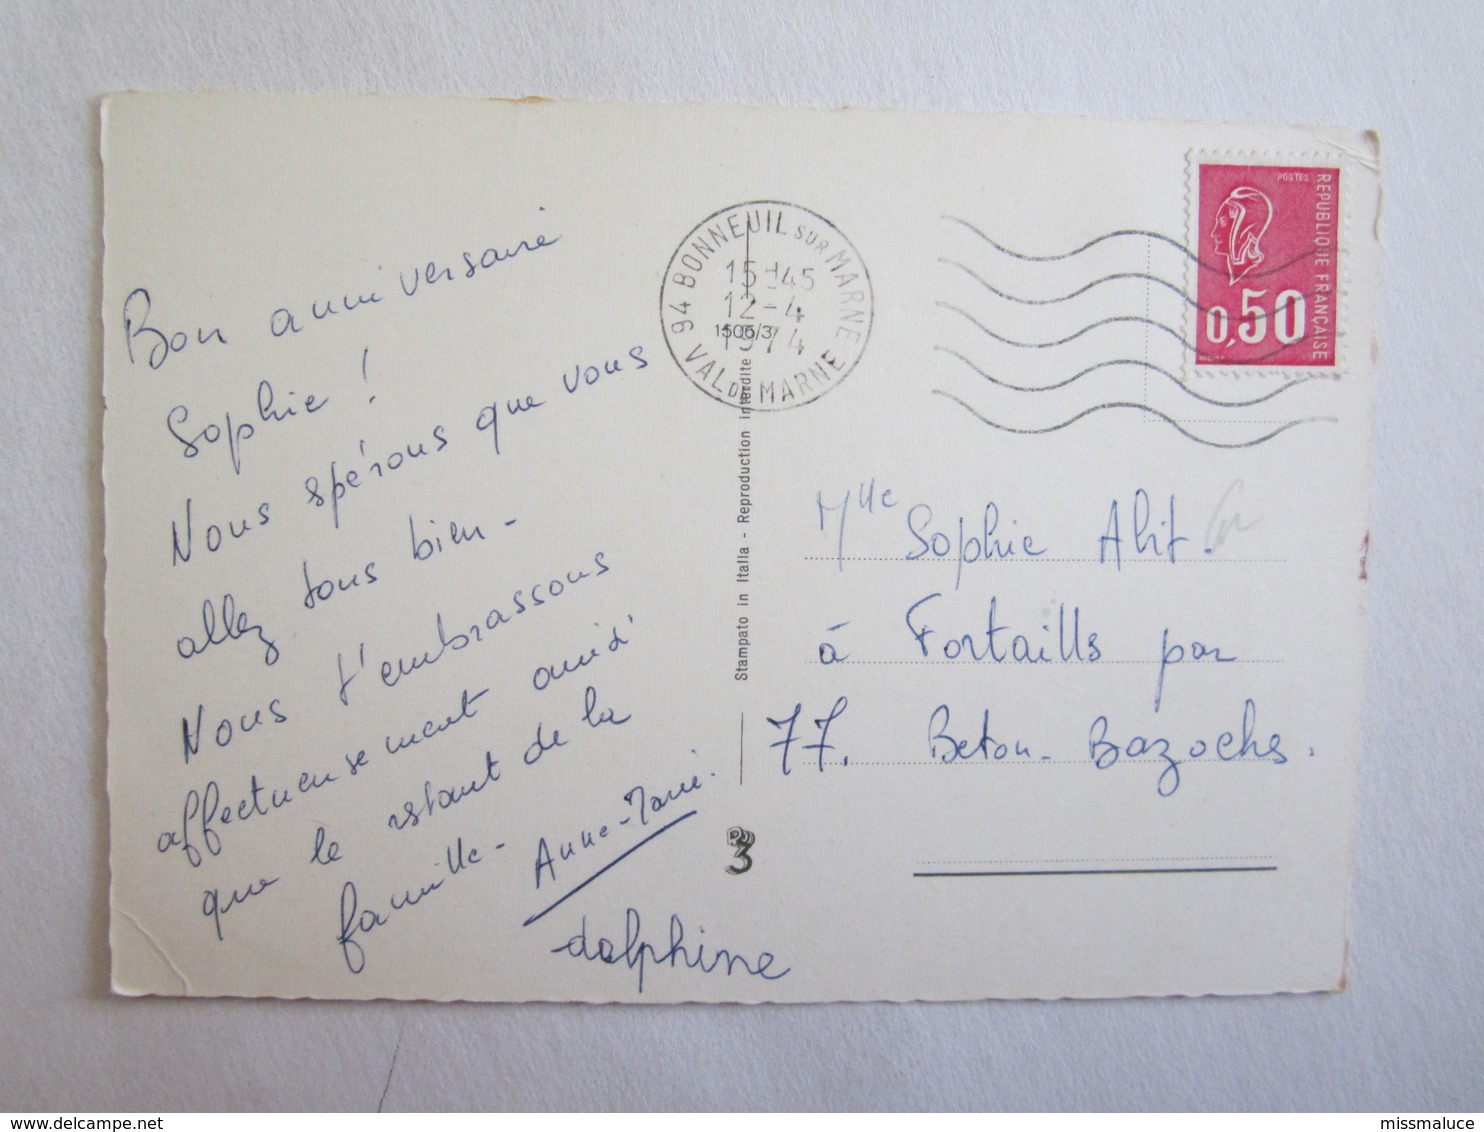 Bon anniversaire
Sophie !
Nous spérons que vous
allez tous bien -
Nous t'embrassons
affectueusement ainsi
que le restant de la
famille -
Anne-Marie.
delphine
94 BONNEUIL SUR MARNE
15H45
12-4
1974
VAL DE MARNE
1506/3
Stampato in Italia - Reproduction interdite
POSTES
REPUBLIQUE FRANÇAISE
0,50
Mlle Sophie Alit.
à Fortailles par
77. Beton-Bazoches.
3
delcampe.net
missmaluce